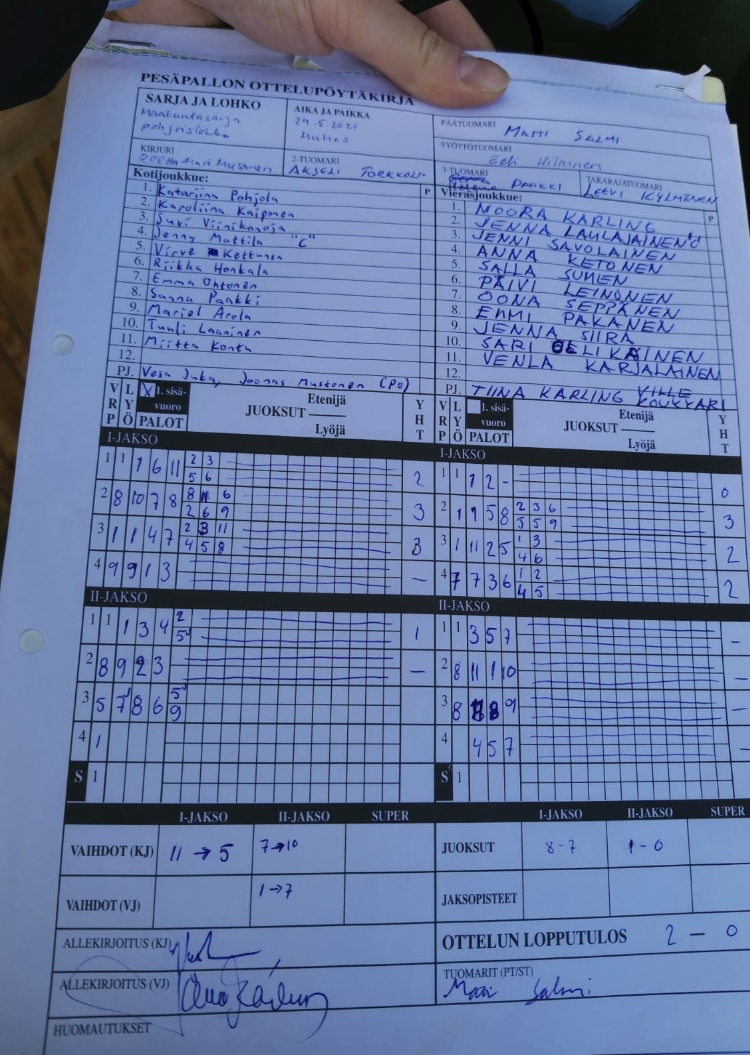 PESÄPALLON OTTELUPÖYTÄKIRJA
SARJA JA LOHKO
Maakuntasarja
pohjoislohko
AIKA JA PAIKKA
29.5 2021
Muhos
PÄÄTUOMARI
MATTI SALMI
SYÖTTÖTUOMARI
Eeli
KIRJURI
Mustonen
2-TUOMARI
AKSELI
3-TUOMARI
PAAKKI
TAKARAJATUOMARI
LEEVI KYLMÄNEN
Kotijoukkue:
P
1. Katariina Pohjola
2. Karoliina Kaiponen
3. Suvi Viinikanoja
4. Jenny Mattila "C"
5. Virve Kettunen
6. Riikka Honkala
7. Emma Ohtonen
8. Sanna Paakki
9. Marjel Arola
10. Tuuli Laurinen
11. Miitta Kontu
12.
PJ. Vesa Juka, Joonas Mustonen (PO)
Vierasjoukkue:
P
1. NOORA KARLING
2. JENNA LAULAJAINEN "C
3. JENNI SAVOLAINEN
4. ANNA KETONEN
5. SALLA SUMEN
6. PÄIVI LEINONEN
7. OONA SEPPÄNEN
8. EMMI PAKANEN
9. JENNA SIIRA
10. SARI HELIKAINEN
11. VENLA KARJALAINEN
12.
PJ. TIINA KARLING VILLE KOUKKARI
VRP LYÖ X 1. sisävuoro PALOT JUOKSUT Etenijä Lyöjä YHT
VRP LYÖ 1. sisävuoro PALOT JUOKSUT Etenijä Lyöjä YHT
I-JAKSO
1 1 1 6 11 2 3 2
5 6
2 8 10 7 8 8 11 6 3
2 6 9
3 1 1 4 7 2 3 11 3
4 5 8
4 9 9 1 3 –
II-JAKSO
1 1 1 3 4 2 1
5
2 8 9 2 3 –
3 5 7 8 6 5
9
4 1
S 1
I-JAKSO
1 1 1 2 - 0
2 1 1 5 8 2 3 6 3
5 5 9
3 1 11 2 5 1 3 2
4 6
4 7 7 3 6 1 2 2
4 5
II-JAKSO
1 1 3 5 7 –
2 8 11 1 10 –
3 8 8 9 –
4 4 5 7 –
S 1
I-JAKSO II-JAKSO SUPER
VAIHDOT (KJ) 11 → 5 7→10
VAIHDOT (VJ) 1→7
ALLEKIRJOITUS (KJ)
ALLEKIRJOITUS (VJ)
HUOMAUTUKSET
I-JAKSO II-JAKSO SUPER
JUOKSUT 8-7 1-0
JAKSOPISTEET
OTTELUN LOPPUTULOS 2 – 0
TUOMARIT (PT/ST)
Matti Salmi